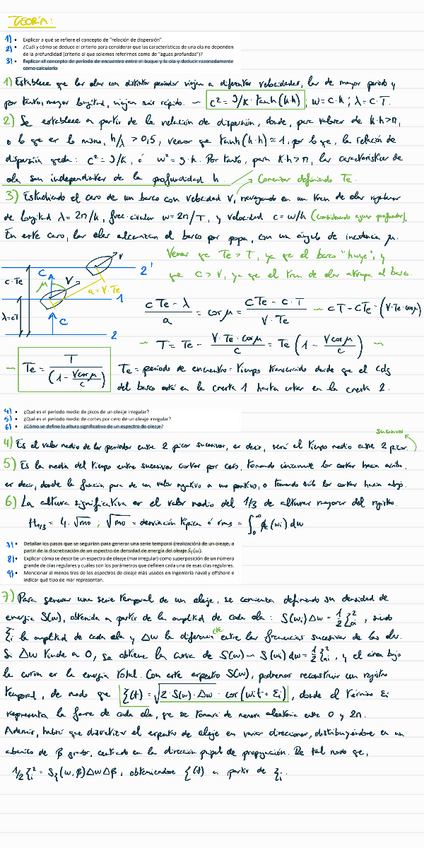 TEORÍA:
1) • Explicar a qué se refiere el concepto de "relación de dispersión".
2) • ¿Cuál y cómo se deduce el criterio para considerar que las características de una ola no dependen
de la profundidad (criterio al que solemos referirnos como de "aguas profundas")?
3) • Explicar el concepto de período de encuentro entre el buque y la ola y deducir razonadamente
cómo calcularlo
1) Establece que las olas con distinto periodo viajan a diferentes velocidades, las de mayor periodo y
por tanto, mayor longitud, viajan más rápido. → c² = g/k · tanh(k·h) ; w = c·k ; λ = c·T.
2) Se establece a partir de la relación de dispersión, donde, para valores de k·h>π,
o lo que es lo mismo, h/λ > 0,5, vemos que tanh(k·h) ≈ 1, por lo que, la relación de
dispersión queda: c² = g/k, ó w² = g·k. Por tanto, para k·h > π, las características de
ola son independientes de la profundidad h.
Comenzar definiendo Te.
3) Estudiando el caso de un barco con velocidad V, navegando en un tren de olas regulares
de longitud λ = 2π/k, frec. circular w = 2π/T, y velocidad c = w/k (considerando aguas profundas).
En este caso, las olas alcanzan el barco por popa, con un ángulo de incidencia μ.
Vemos que Te > T, ya que el barco "huye", y
que C > V, ya que el tren de olas atrapa al barco.
c·Te
λ=cT
C
μ
V
a = V·Te
2'
1
C
2
(c Te − λ) / a = cos μ = (c Te − c·T) / (V·Te) → cT = cTe − (V·Te·cos μ)
→ T = Te − (V·Te·cos μ)/c = Te (1 − (V cos μ)/c) →
→ Te = T / (1 − (V cos μ)/c)
Te = periodo de encuentro = tiempo transcurrido desde que el cdg
del barco está en la cresta 1 hasta estar en la cresta 2.
4) • ¿Qué es el periodo medio de picos de un oleaje irregular?
5) • ¿Qué es el periodo medio de cortes por cero de un oleaje irregular?
6) • ¿Cómo se define la altura significativa de un espectro de oleaje?
sucesivos
4) Es el valor medio de los periodos entre 2 picos sucesivos, es decir, será el tiempo medio entre 2 picos
5) Es la media del tiempo entre sucesivos cortes por cero, tomando únicamente los cortes hacia arriba,
es decir, donde la función pasa de un valor negativo a uno positivo, o tomando sólo los cortes hacia abajo.
6) La altura significativa es el valor medio del 1/3 de alturas mayores del registro.
7) • Detallar los pasos que se seguirían para generar una serie temporal (realización) de un oleaje, a
partir de la discretización de un espectro de densidad de energía del oleaje
8) • Explicar cómo se describe un espectro de oleaje (mar irregular) como superposición de un número
grande de olas regulares y cuáles son los parámetros que definen cada una de esas olas regulares.
9) • Mencionar al menos tres de los espectros de oleaje más usados en ingeniería naval y offshore e
indicar qué tipo de mar representan.
7) Para generar una serie temporal de un oleaje, se comienza definiendo su densidad de
energía S(w), obtenida a partir de la amplitud de cada ola: S(wi) Δw = ½ ξi², siendo
ξi la amplitud de cada ola y Δw la diferencia entre las frecuencias sucesivas de las olas.
Si Δw tiende a 0, se obtiene la curva de S(w) → S(wi) dw = ½ ξi², y el área bajo
la curva es la energía total. Con este espectro S(w), podremos reconstruir un registro
temporal, de modo que ξ(t) = √(2·S(w)·Δw) · cos(wi t + εi), donde el término εi
representa la fase de cada ola, que se tomará de manera aleatoria entre 0 y 2π.
Además, habrá que discretizar el espectro de oleaje en varias direcciones, distribuyéndose en un
abanico de β grados, centrado en la dirección principal de propagación. De tal modo que,
½ ξi² = S(w,β) Δw Δβ, obteniéndose ξ(t) a partir de ξi.